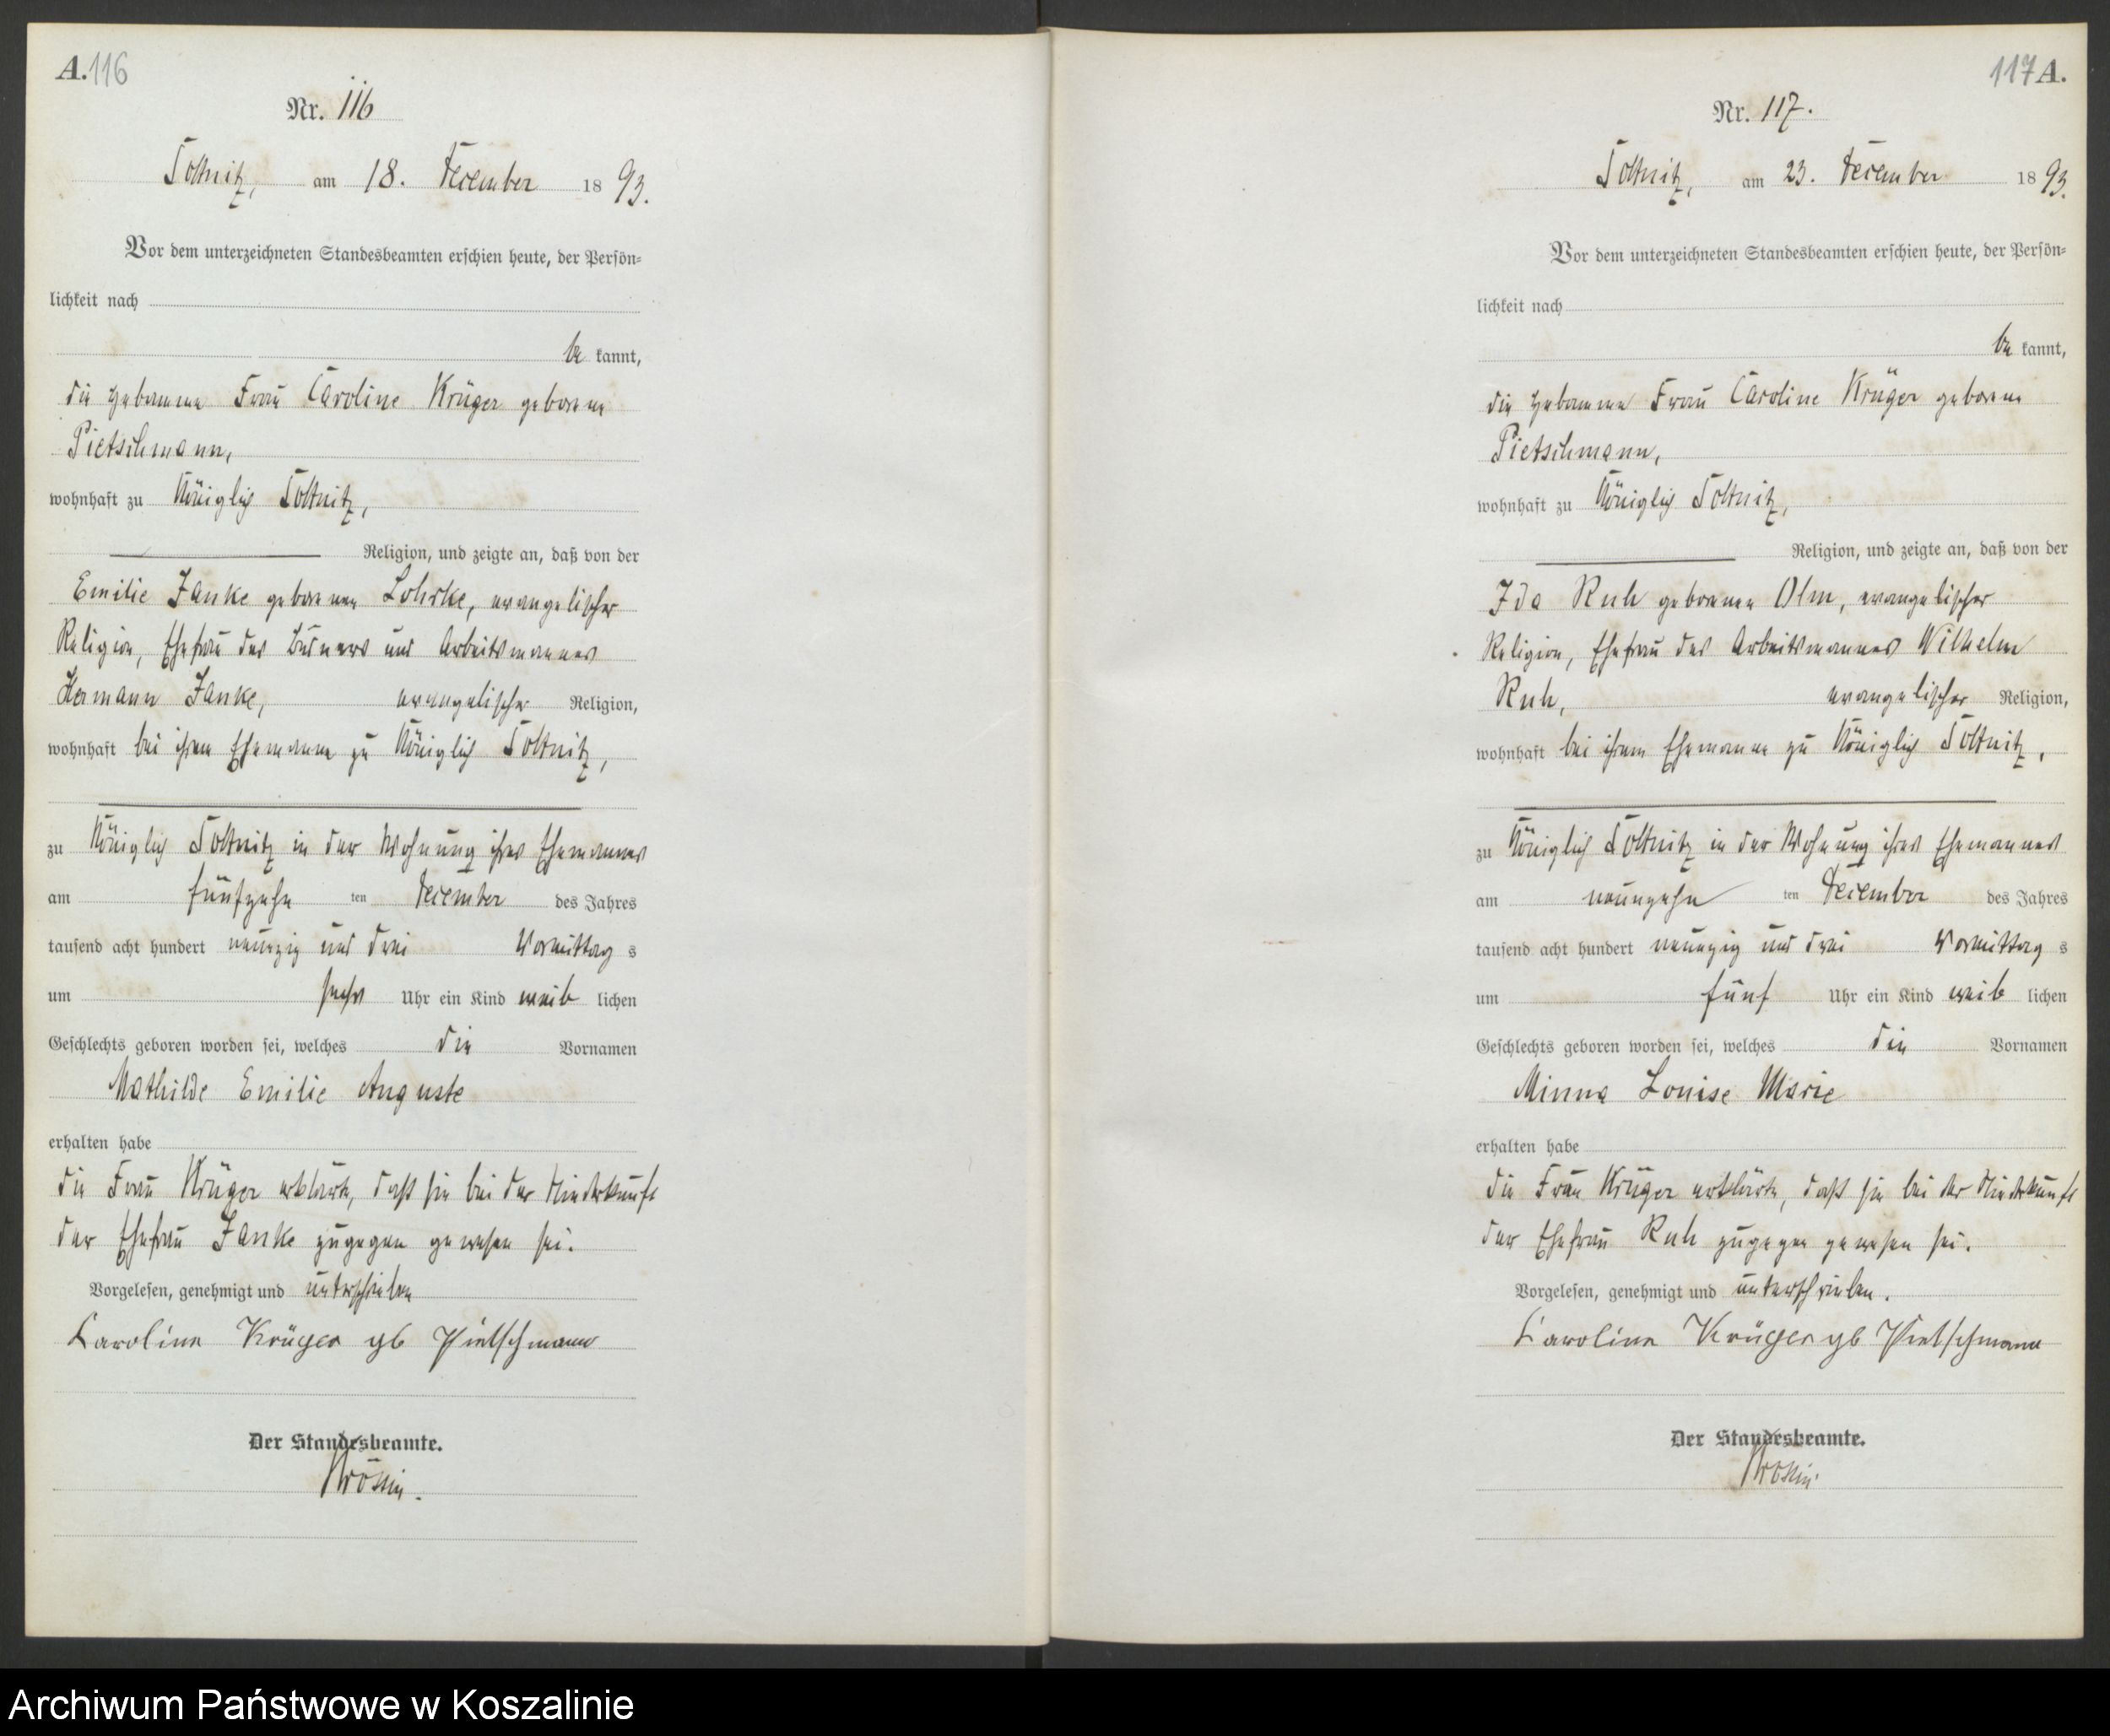 A. 116
Nr. 116
Soltnitz, am 18. December 1893.
Vor dem unterzeichneten Standesbeamten erschien heute, der Persön=
lichkeit nach
be kannt,
die Hebamme Frau Caroline Krüger geborene
Pietschmann,
wohnhaft zu Königlich Soltnitz,
Religion, und zeigte an, daß von der
Emilie Janke geborenen Lohrke, evangelischer
Religion, Ehefrau des Büdners und Arbeitsmannes
Hermann Janke, evangelischer Religion,
wohnhaft bei ihrem Ehemanne zu Königlich Soltnitz,
zu Königlich Soltnitz in der Wohnung ihres Ehemannes
am fünfzehn ten December des Jahres
tausend acht hundert neunzig und drei Vormittag s
um sechs Uhr ein Kind weib lichen
Geschlechts geboren worden sei, welches die Vornamen
Mathilde Emilie Auguste
erhalten habe
die Frau Krüger erklärte, daß sie bei der Niederkunft
der Ehefrau Janke zugegen gewesen sei.
Vorgelesen, genehmigt und unterschrieben
Caroline Krüger gb Pietschmann
Der Standesbeamte.
117 A.
Nr. 117.
Soltnitz, am 23. December 1893.
Vor dem unterzeichneten Standesbeamten erschien heute, der Persön=
lichkeit nach
be kannt,
die Hebamme Frau Caroline Krüger geborene
Pietschmann,
wohnhaft zu Königlich Soltnitz,
Religion, und zeigte an, daß von der
Ida Ruh geborenen Olm, evangelischer
Religion, Ehefrau des Arbeitsmannes Wilhelm
Ruh, evangelischer Religion,
wohnhaft bei ihrem Ehemanne zu Königlich Soltnitz,
zu Königlich Soltnitz in der Wohnung ihres Ehemannes
am neunzehn ten December des Jahres
tausend acht hundert neunzig und drei Vormittag s
um fünf Uhr ein Kind weib lichen
Geschlechts geboren worden sei, welches die Vornamen
Minna Louise Marie
erhalten habe
die Frau Krüger erklärte, daß sie bei der Niederkunft
der Ehefrau Ruh zugegen gewesen sei.
Vorgelesen, genehmigt und unterschrieben.
Caroline Krüger gb Pietschmann
Der Standesbeamte.
Archiwum Państwowe w Koszalinie